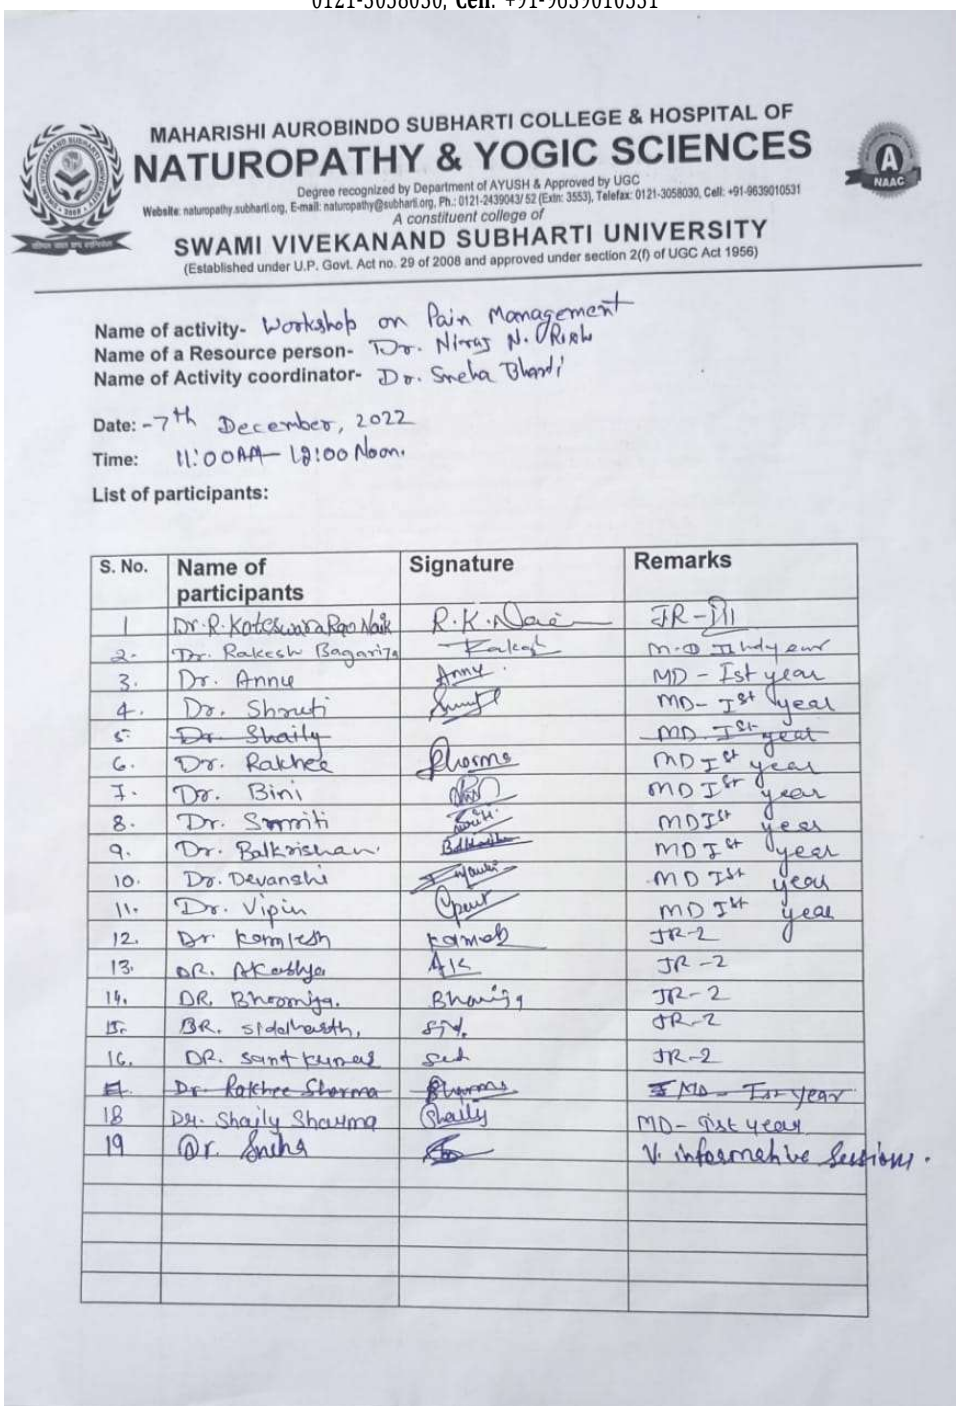 0121-3058030, Cell: +91-9639010531
MAHARISHI AUROBINDO SUBHARTI COLLEGE & HOSPITAL OF
NATUROPATHY & YOGIC SCIENCES
Degree recognized by Department of AYUSH & Approved by UGC
Website: naturopathy.subharti.org, E-mail: naturopathy@subharti.org, Ph.: 0121-2439043/ 52 (Extn: 3553), Telefax: 0121-3058030, Cell: +91-9639010531
A constituent college of
SWAMI VIVEKANAND SUBHARTI UNIVERSITY
(Established under U.P. Govt. Act no. 29 of 2008 and approved under section 2(f) of UGC Act 1956)
A
NAAC
Name of activity- Workshop on Pain Management
Name of a Resource person- Dr. Niraj N.
Name of Activity coordinator- Dr. Sneha Bharti
Date: - 7th December, 2022
Time: 11:00AM - 12:00 Noon.
List of participants:
S. No. Name of participants Signature Remarks
1 Dr. R. Koteswara Rao Naik R.K.Nai JR-III
2. Dr. Rakesh Bagariya Rakesh M.D II ndyear
3. Dr. Annu Annu. MD - Ist year
4. Dr. Shruti MD - Ist year
5. Dr. Shaily MD Ist year
6. Dr. Rakhee Sharma MD Ist year
7. Dr. Bini MD Ist year
8. Dr. Smriti MD Ist year
9. Dr. Balkrishan. MD Ist year
10. Dr. Devanshi MD Ist year
11. Dr. Vipin MD Ist year
12. Dr Kamlesh Kamlesh JR-2
13. DR. Akashya AK JR-2
14. DR. Bhoomija. JR-2
15. DR. Siddharth, Sid. JR-2
16. DR. Sant Kumar JR-2
17. Dr. Rakhee Sharma Sharma MD - Ist year
18 Dr. Shaily Sharma Shaily MD - Ist year
19 Dr. Sneha V. informative Sessions.